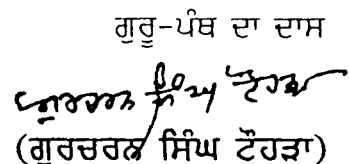 ਗੁਰੂ-ਪੰਥ ਦਾ ਦਾਸ
ਗੁਰਚਰਨ ਸਿੰਘ ਟੌਹੜਾ
(ਗੁਰਚਰਨ ਸਿੰਘ ਟੌਹੜਾ)